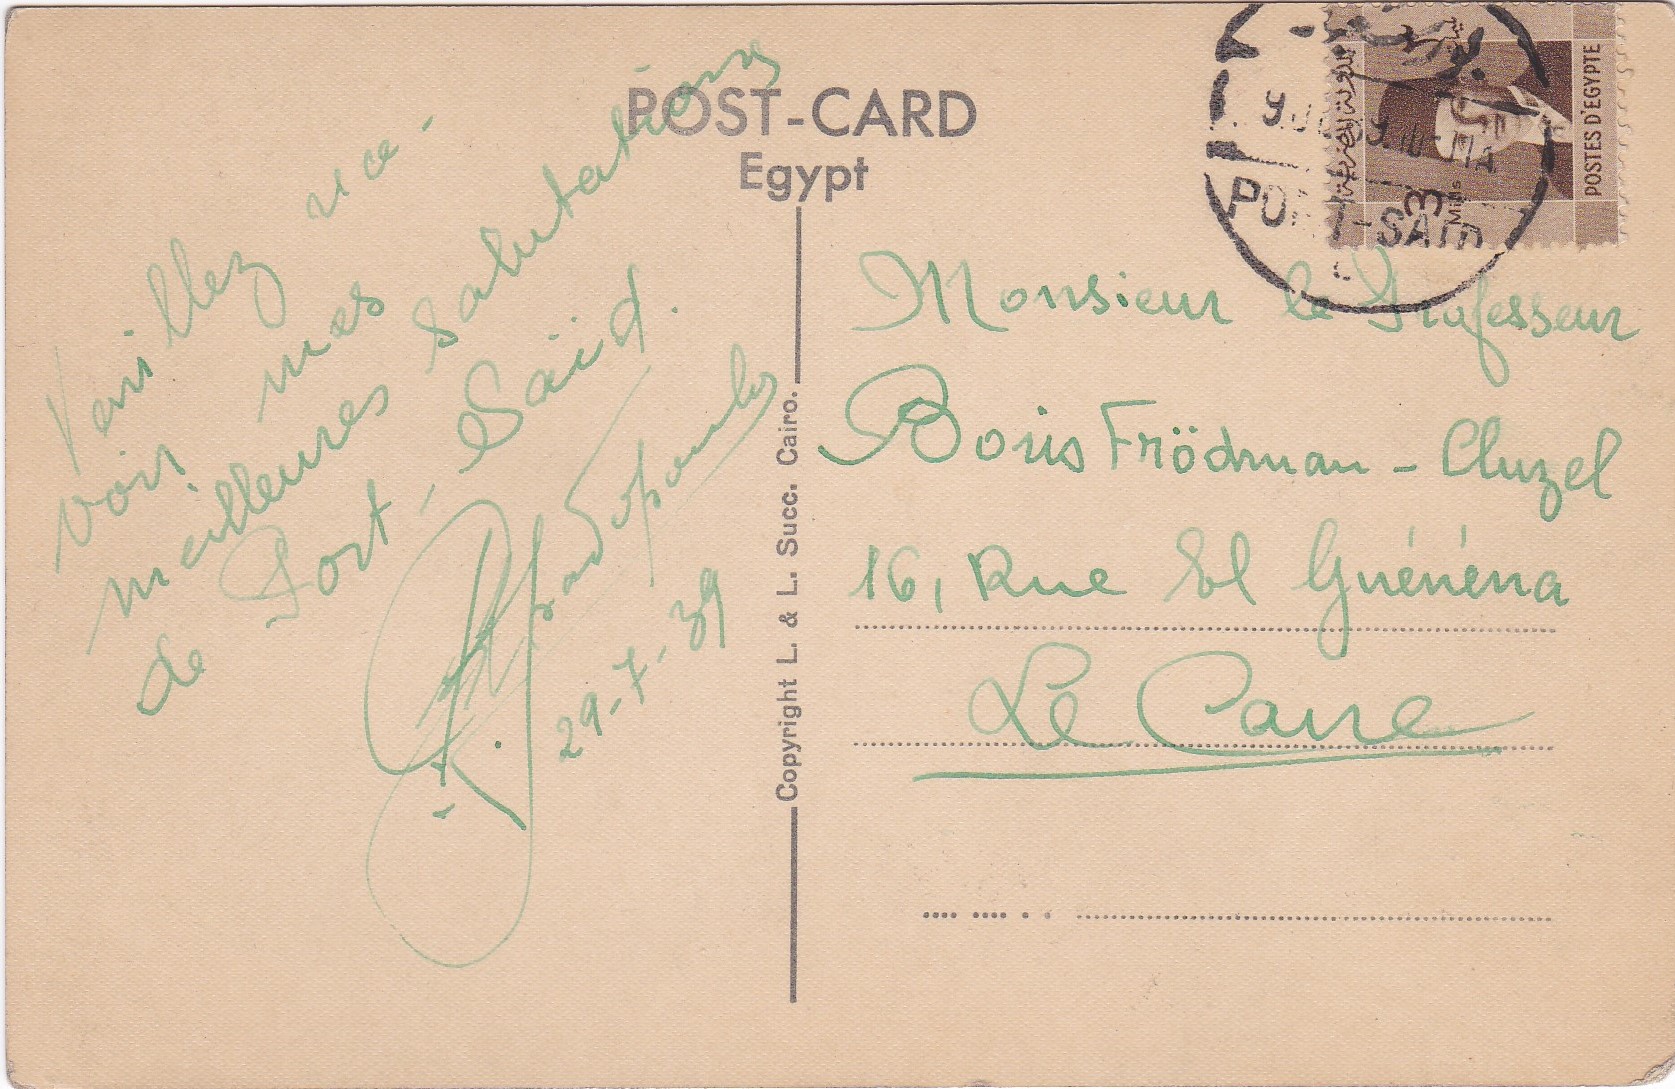 POST-CARD
Egypt
Veuillez rece-
voir mes
meilleures salutations
de Port-Saïd.
Papadopoulos
29-7-39
Copyright L. & L. Succ. Cairo.
POSTES D'EGYPTE
3
Mills
PORT-SAID
Monsieur le Professeur
Boris Frödman-Cluzel
16, Rue El Guénéna
Le Caire